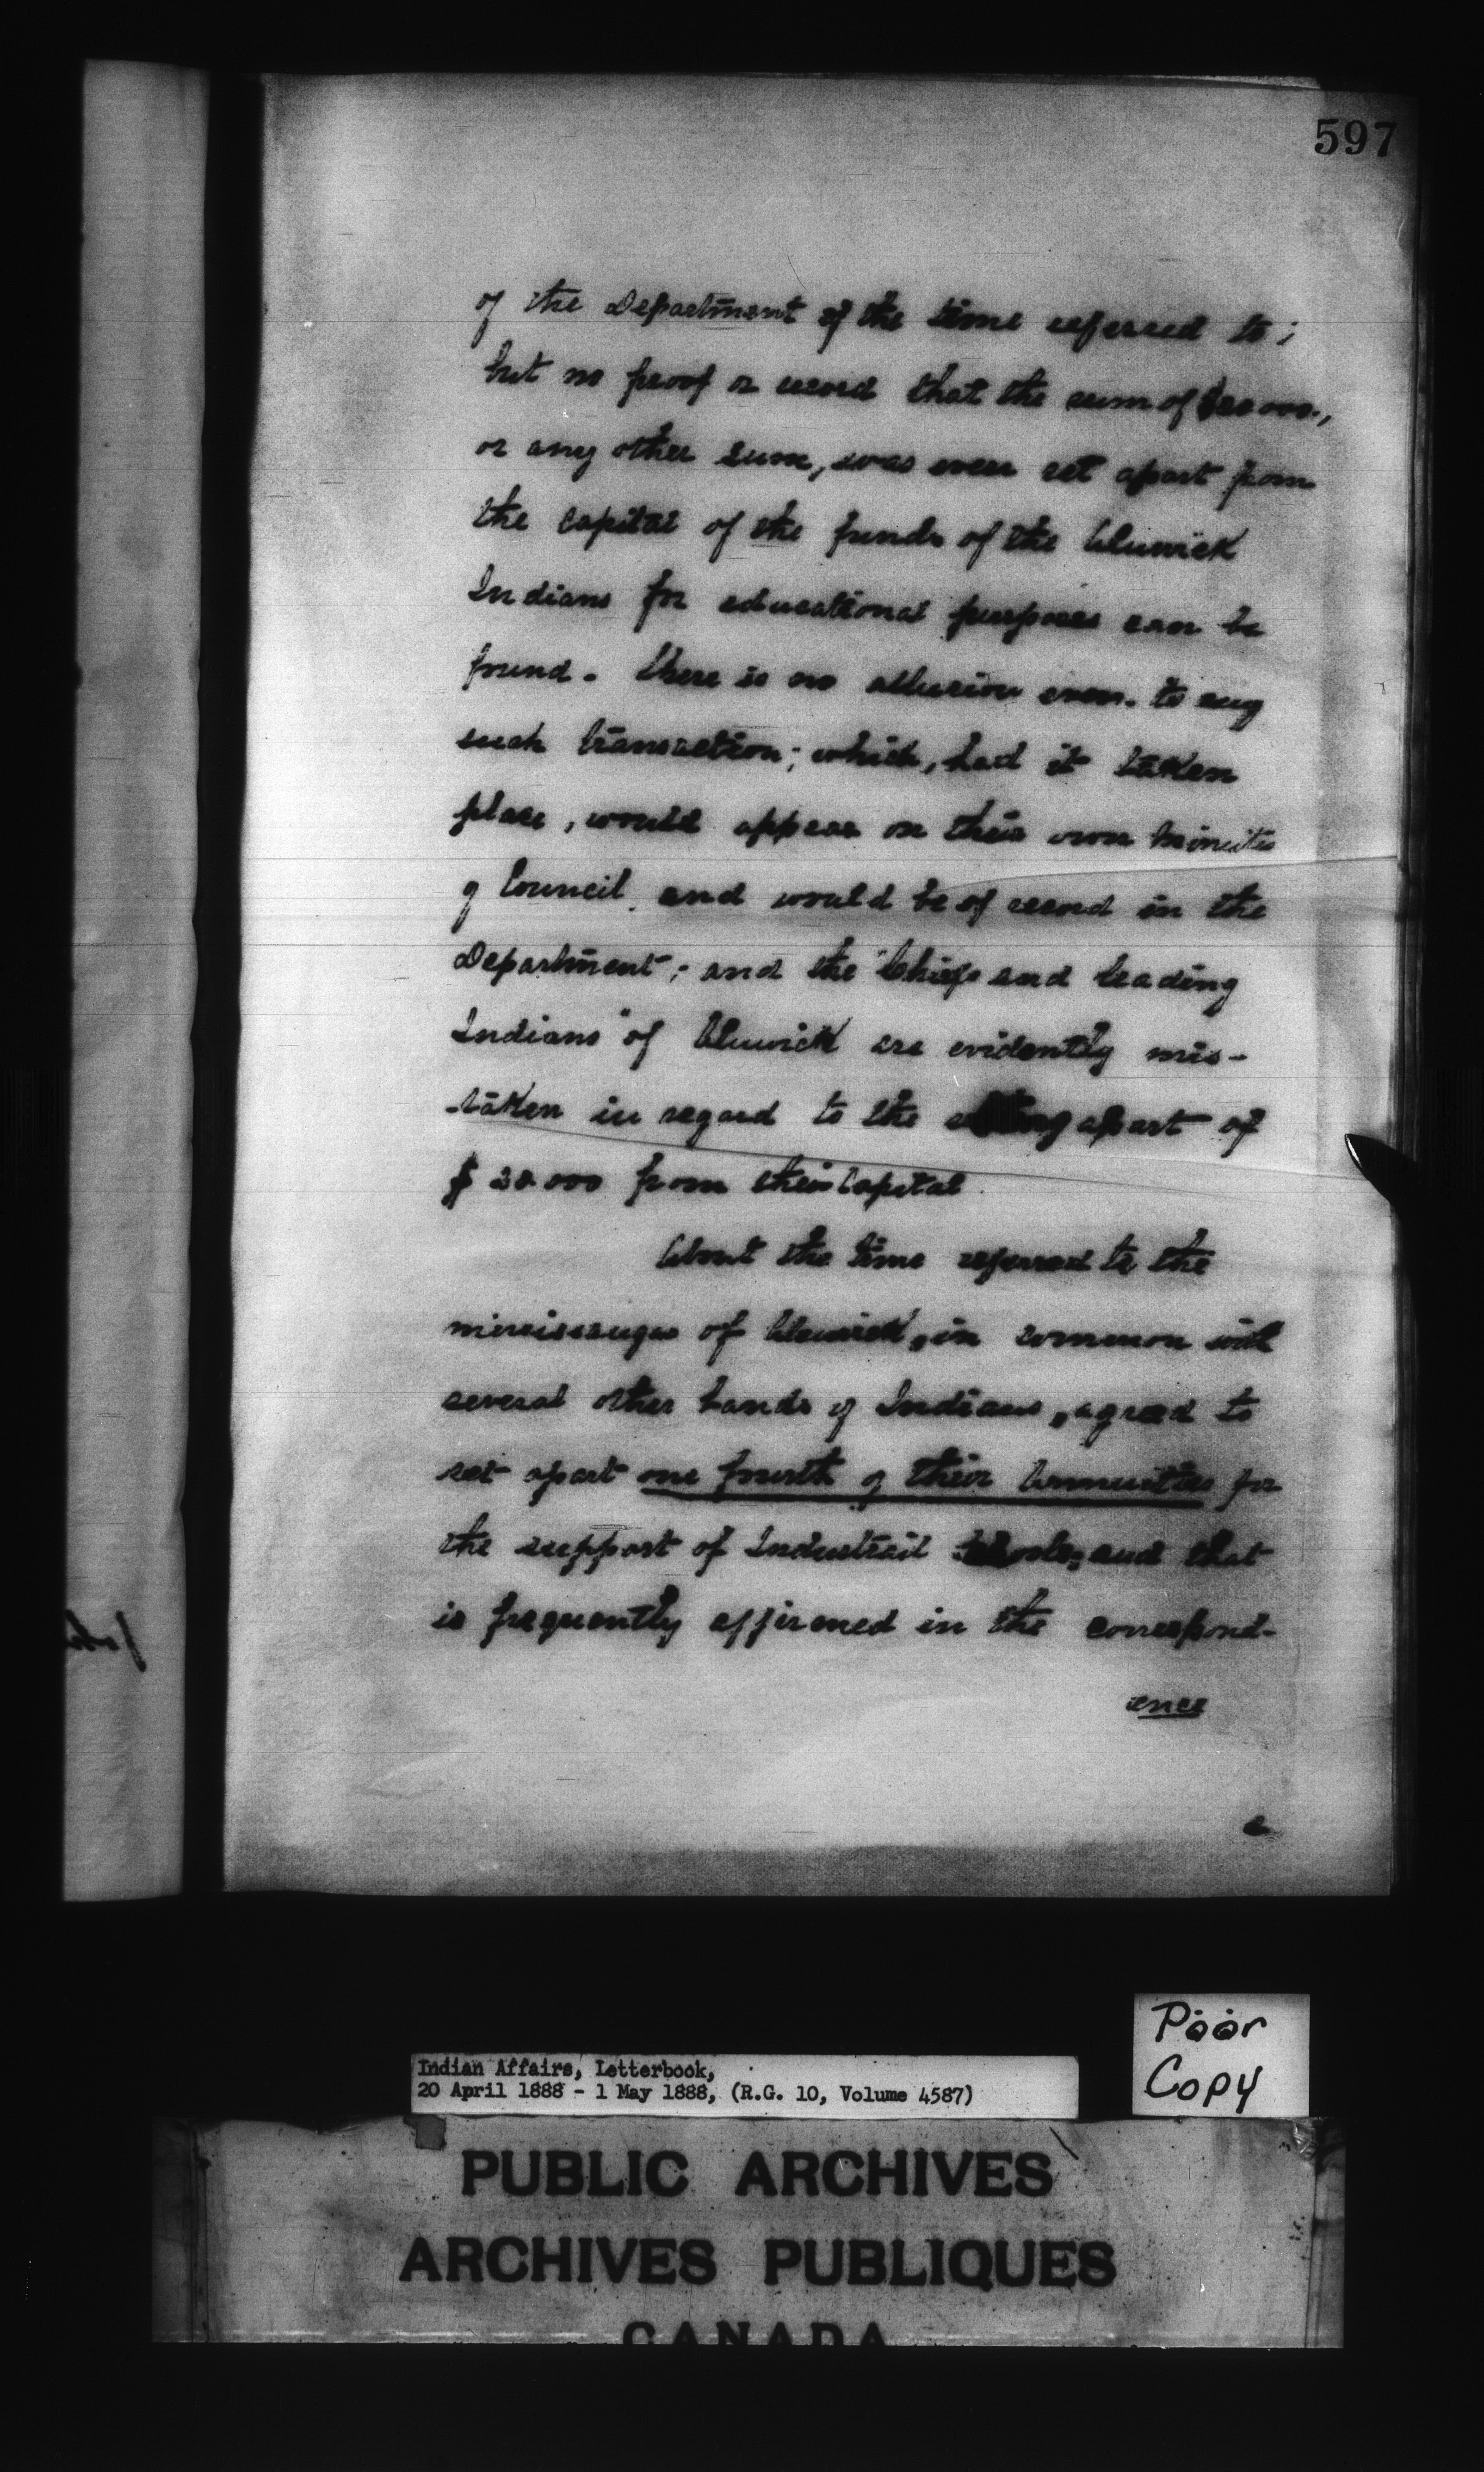 597
of the Department of the time referred to;
but no proof or record that the sum of $20000.,
or any other sum, was ever set apart from
the Capital of the funds of the Alnwick
Indians for educational purposes can be
found. There is no allusion even to any
such transaction; which, had it taken
place, would appear on their own Minutes
of Council, and would be of record in the
Department; and the "Chiefs and leading
Indians" of Alnwick are evidently mis-
-taken in regard to the setting apart of
$20000 from their Capital
About the time referred to the
Mississaugas of Alnwick, in common with
several other bands of Indians, agreed to
set apart one fourth of their Annuities for
the support of Industrail Schools; and that
is frequently affirmed in the correspond-
ence
Poor
Copy
Indian Affairs, Letterbook,
20 April 1888 - 1 May 1888, (R.G. 10, Volume 4587)
PUBLIC ARCHIVES
ARCHIVES PUBLIQUES
CANADA